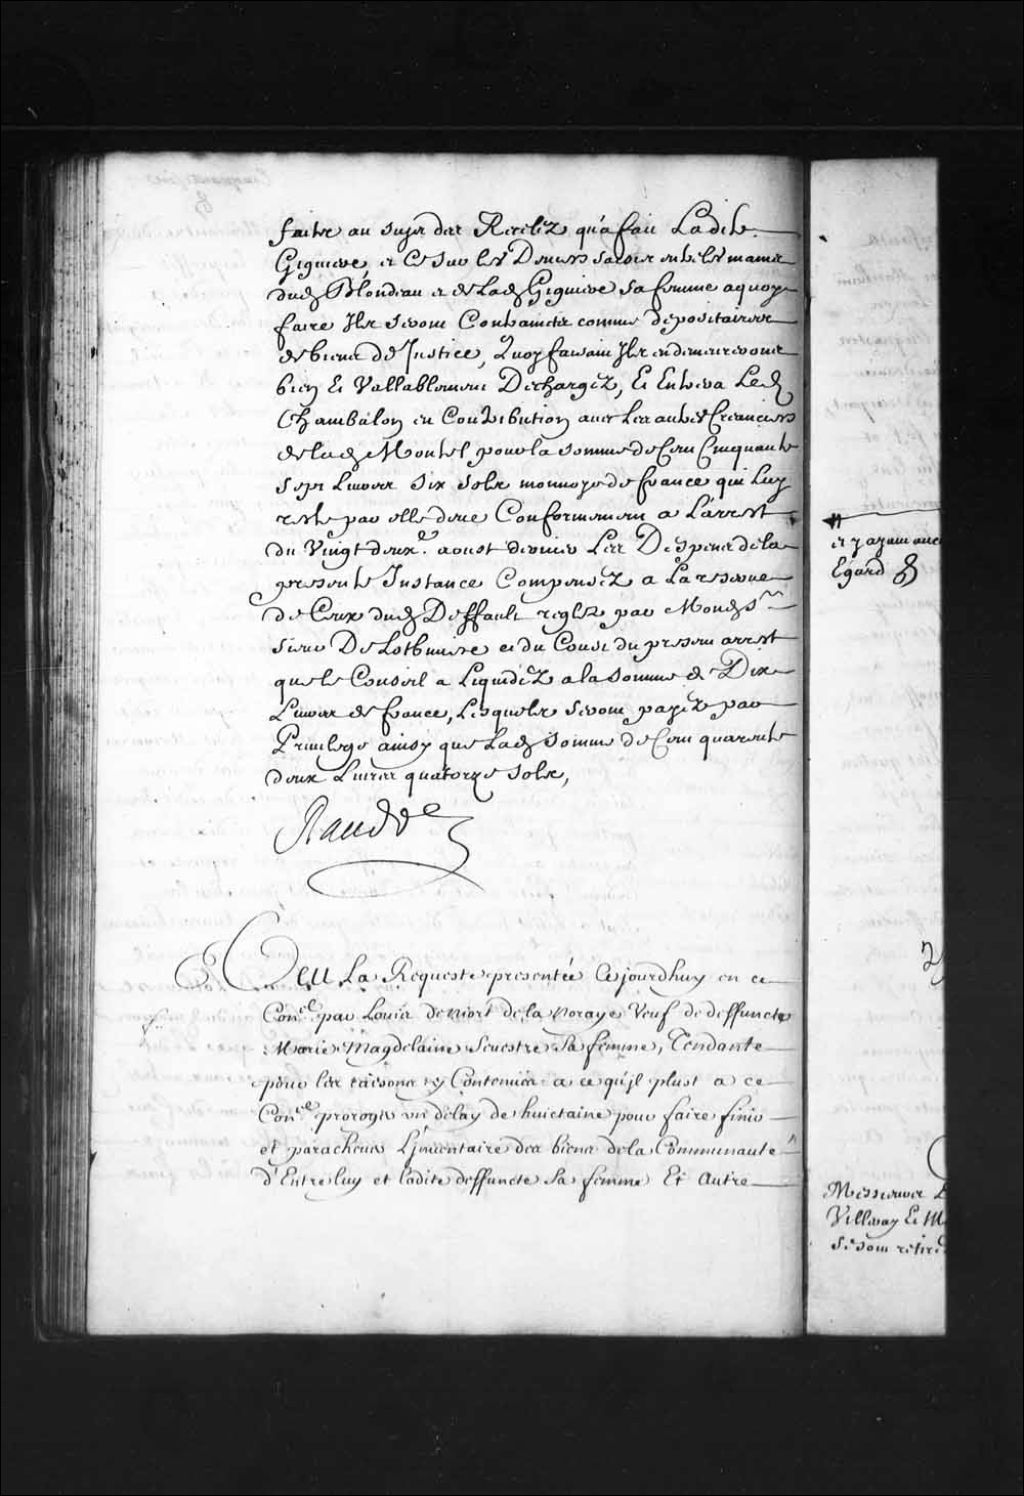 faitte au sujet des Recelez qu'a fait Ladite
Gignieve, et Ce sur les Deniers saisis entre les mains
dud. Blondeau et de Lad. Gignieve sa femme a quoy
faire Ils seront Contraincts comme depositaires
de biens de Justice, Quoy faisant Ils en demeureront
bien Et Vallablement Deschargéz, Et Entrera Led.
Chambalon en Contribution avec les autres Creanciers
de lad. Montel pour la somme de Cent Cinquante
Sept Livres Six Sols monnoye de france qui Luy
reste par elle deue Conformement a L'arrest
du Vingt deuxe. aoust dernier Les Despens de la
presente Instance Compensez a La reserve
de Ceux dud. Deffault reglez par Mond. Sr.
sieur De Lotbiniere et du Coust du present arrest
que le Conseil a Liquidéz a la somme de Dix
Livres de france, Lesquels seront payez par
Privilege ainsy que Lad. somme de Cent quarante
deux Livres quatorze sols,
Raudot
Veu La Requeste presentée Cejourdhuy en ce
Conel. par Louis de Niort de la Noraye Veuf de deffuncte
Marie Magdelaine Sevestre sa femme, Tendante
pour les raisons y Contenües a ce qu'jl plust a ce
Conel. proroger un delay de huictaine pour faire finir
et parachever L'jnventaire des biens de la Communauté
d'Entre luy et ladite deffuncte sa femme Et Autre
et y ayant
Egard
Messieurs
Villeray Et M
se sont retire